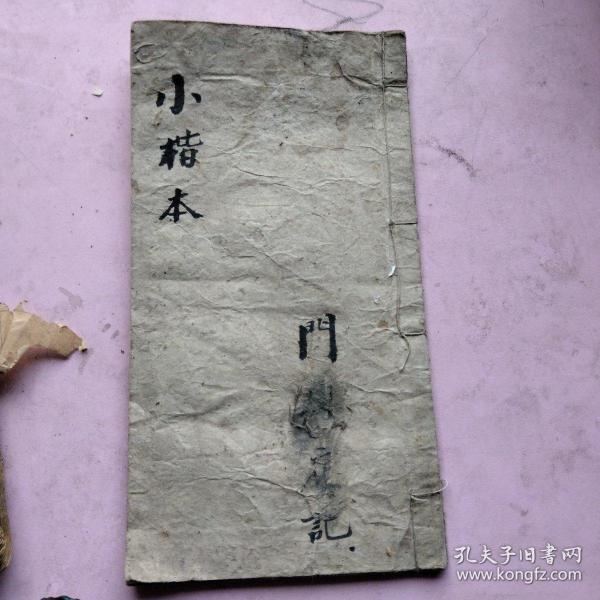 小楷本
門
記
孔夫子旧書网
www.kongfz.com